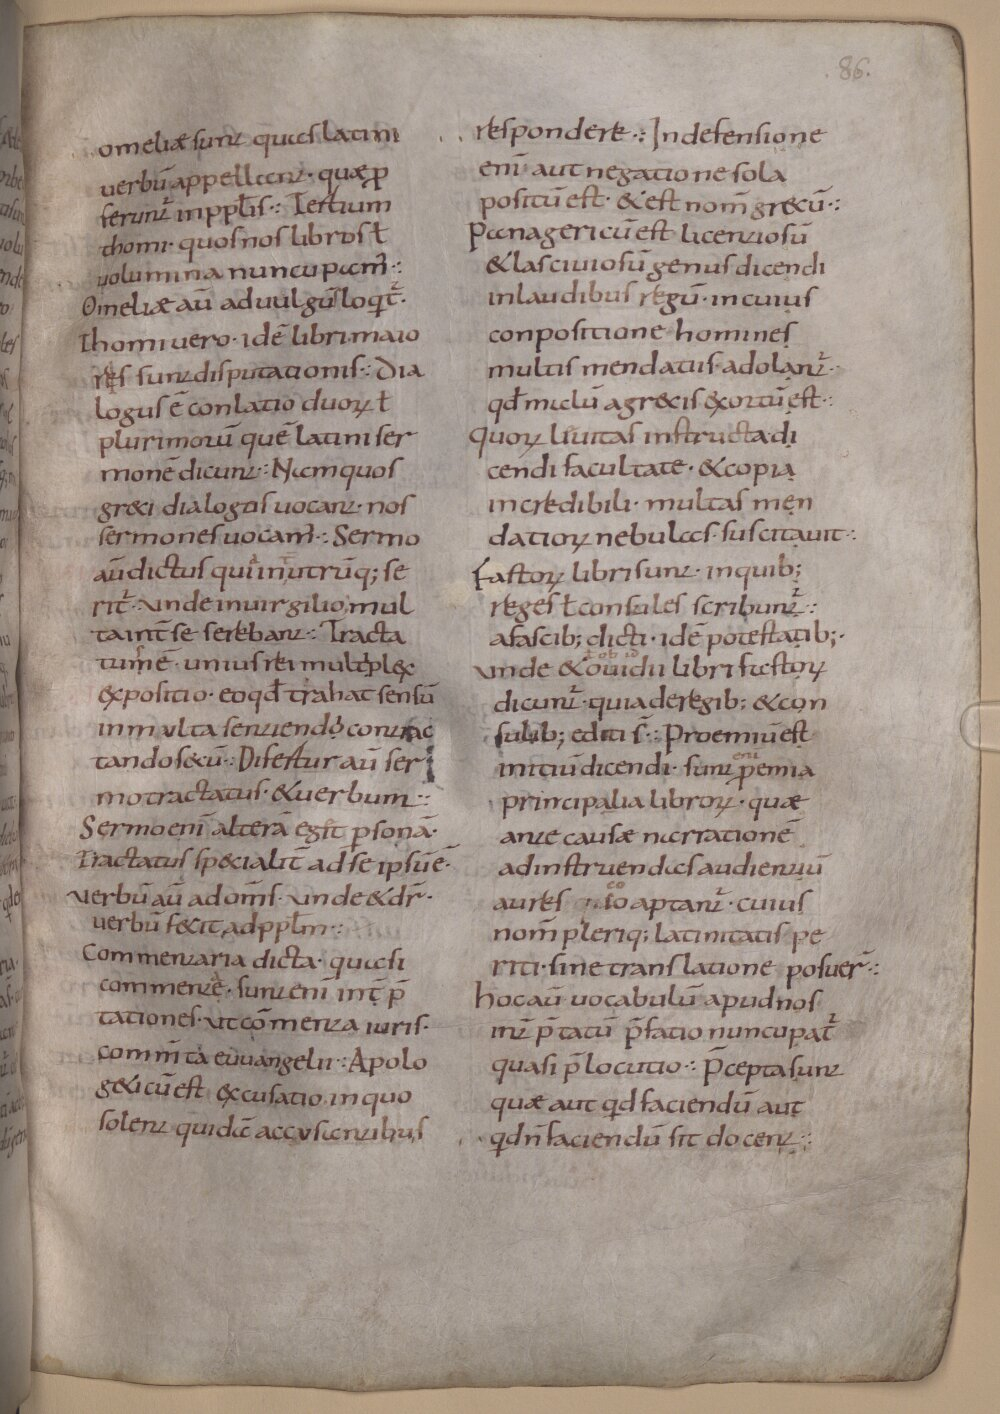 86.
omeliæ sunt quas latini
uerbū appellant· quæ p̄
ferunt̄ in ppl̄is·: Tertium
thomi· quos nos libros ł
uolumina nuncupam̄·:
Omeliæ aū ad uulgū loqt̄·
Thomi uero· idē libri maio
res sunt disputationis·: Dia
logus ē conlatio duoꝝ ł
plurimorū quē latini ser
monē dicunt·: Nam quos
greci dialogos uocant· nos
sermones uocam̄·: Sermo
aū dictus qui int̄ utrūq; se
rit̄· unde in uirgilio mul
ta int̄ se serebant·: Tracta
tus ē· unius rei multiplex
expositio· eo qd̄ trahat sensū
in multa sentiendo contrac
tando secū·: Disertur aū ser
mo tractatus· & uerbum·:
Sermo enī alterā egit̄ psonā·
Tractatus specialit̄ ad se ipsū ē·
uerbū aū ad om̄s· unde & dr̄·
uerbū fecit ad ppl̄m·:
Commentaria dicta· quasi
commente· sunt enī int̄ p̄
tationes· ut cōmenta iuris·
comm̄ta euuangelii·: Apolo
geticū est excusatio in quo
solent quidā accusantibus
respondere·: In defensione
enī aut negatione sola
positū est· & est nom̄ grecū·:
Panagericū est licentiosū
& lasciuiosū genus dicendi
in laudibus regū· in cuius
conpositione homines
multis mendatiis adolant̄·
qd̄ malū a grecis exortū est·:
Quoꝝ leuitas instructa di
cendi facultate· & copia
incredibili· multas men
datioꝝ nebulas suscitauit·:
Fastoꝝ libri sunt· in quib;
reges ł consules scribunt̄·:
a fascib; dicti· idē potestatib;·
unde & ouidii libri fastoꝝ
dicunt̄· quia de regib; & con
sulib; editi s̄·: Proemiū est
initiū dicendi· sunt p̄emia
principalia libroꝝ· quæ
ante causæ narrationē
ad instruendas audientiū
aures aptant̄· cuius
nom̄ pleriq; latinitatis pe
riti· sine translatione posuer̄·:
hoc aū uocabulū apud nos
int̄ p̄tatū p̄fatio nuncupat̄
quasi p̄locutio·: P̄cepta sunt
quæ aut qd faciendū aut
qd n̄ faciendū sit docent·: